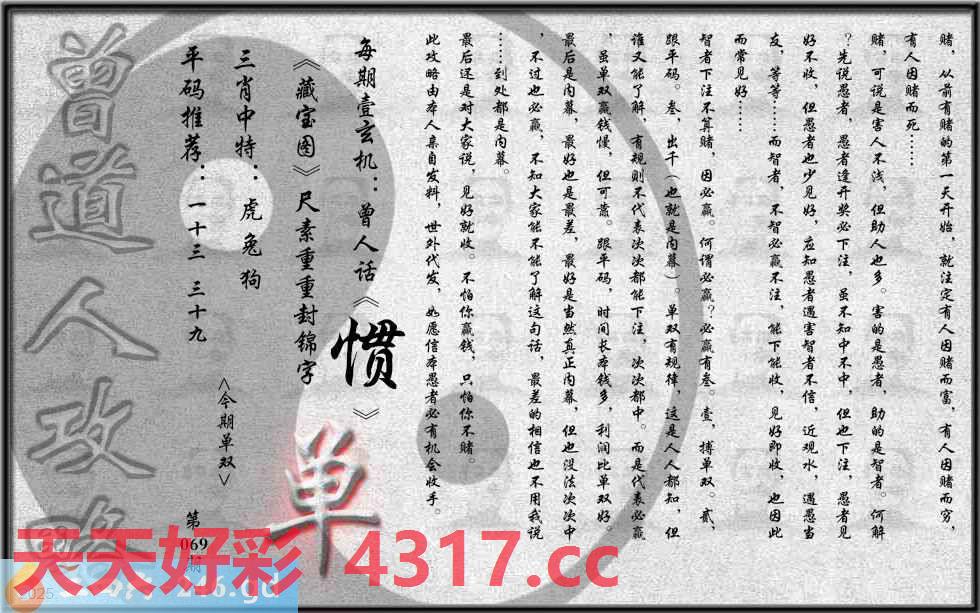 赌，从前有赌的第一天开始，就注定有人因赌而富，有人因赌而穷，
有人因赌而死……
赌，可说是害人不浅，但助人也多。害的是愚者，助的是智者。何解
？先说愚者，愚者逢开奖必下注，虽不知中不中，但也下注，愚者见
好不收，但愚者也少见好，应知愚者遇害智者不信，近观水，遇愚当
友，等等……而智者，不智必赢不注，能下能收，见好即收，也因此
而常见好……
智者下注不算赌，因必赢。何谓必赢？必赢有叁。壹，搏单双。贰，
跟平码。叁，出千（也就是内幕）。单双有规律，这是人人都知，但
谁又能了解，有规则不代表次次都能下注，次次都中。而是代表必赢
，虽单双赢钱慢，但可蓄。跟平码，时间长本钱多，利润比单双好。
最后是内幕，最好也是最差，最好是当然真正内幕，但也没法次次中
，不过也必赢，不知大家能不能了解这句话，最差的相信也不用我说
……到处都是内幕。
最后还是对大家说，见好就收。不怕你赢钱，只怕你不赌。
此攻略由本人亲自发料，世外代发，如愿信本愚者必有机会收手。
每期壹玄机：曾人话《惯》
《藏宝图》尺素重重封锦字
三肖中特：虎兔狗
平码推荐：一十三 三十九
<今期单双>
单
第
069
期
曾道人攻略
天天好彩 4317.cc
2025
246.gd